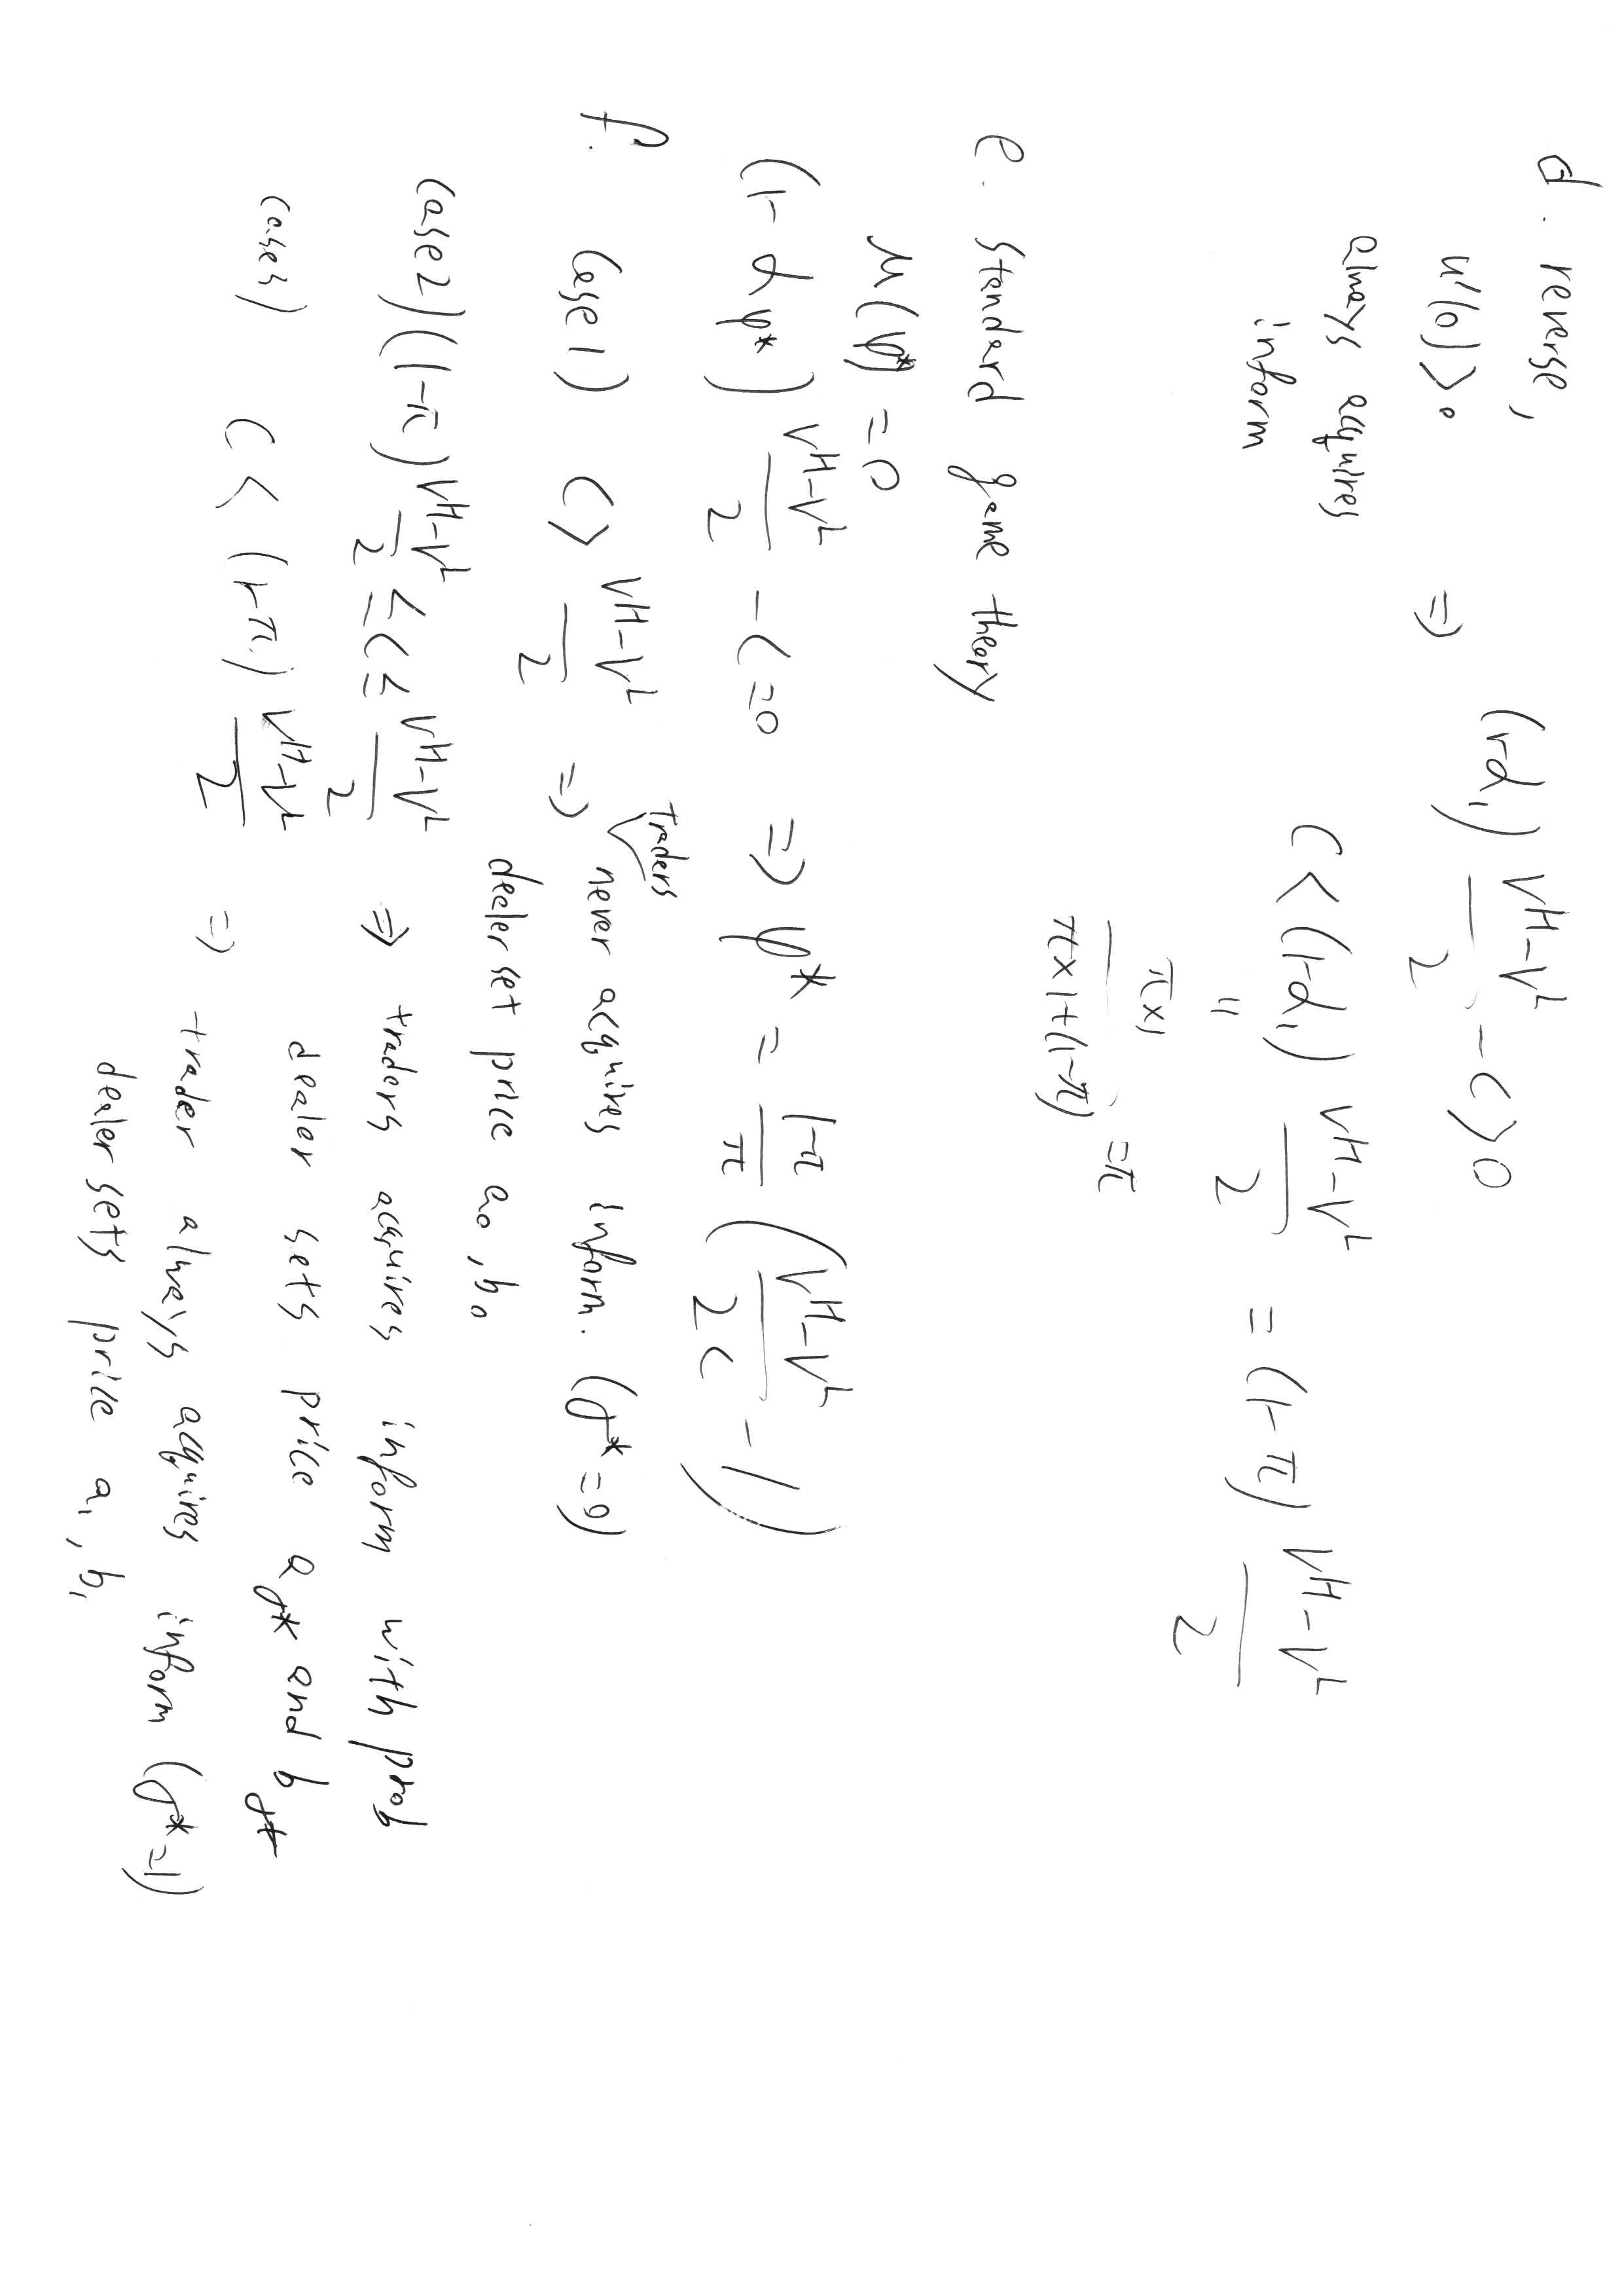 d. reverse,
(1-α₁) (V^H-V^L)/2 - C > 0
u'(0)>0 ⇒
always acquires
inform
C < (1-α₁) (V^H-V^L)/2 = (1-π) (V^H-V^L)/2
=
(π×1)/(π×1+(1-π)) = π
e. Standard game theory
u(φ*) = 0
(1-α_φ*) (V^H-V^L)/2 - C = 0 ⇒ φ* = (1-π)/π ((V^H-V^L)/2C - 1)
Traders
f. Case 1) C > (V^H-V^L)/2 ⇒ never acquires inform. (φ* = 0)
dealer set price a₀, b₀
Case 2) (1-π) (V^H-V^L)/2 ≤ C ≤ (V^H-V^L)/2 ⇒ traders acquires inform with prob
dealer sets price a_φ* and b_φ*
Case 3) C < (1-π) (V^H-V^L)/2 ⇒
trader always acquires inform (φ* = 1)
dealer sets price a₁, b₁